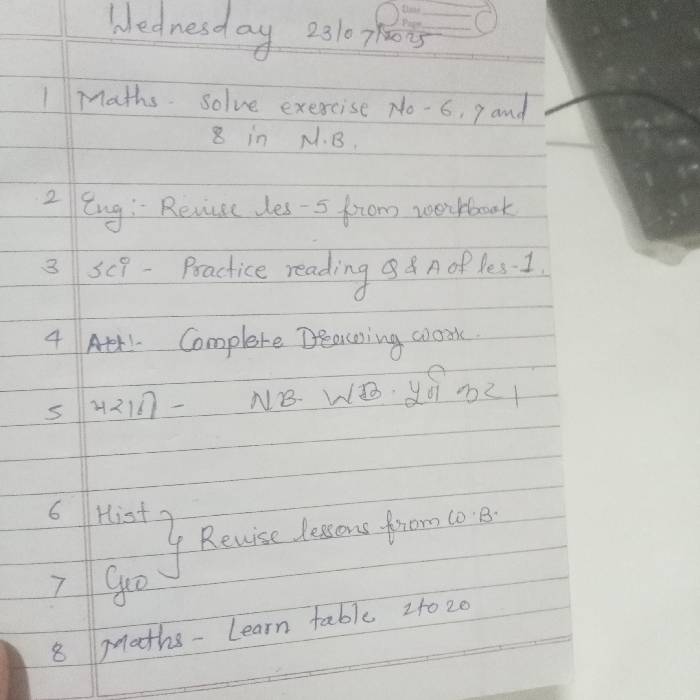 Date
Page
Wednesday 23/07/2025
1 Maths - Solve exercise No - 6, 7 and
8 in N.B.
2 Eng :- Revise les - 5 from workbook
3 Sci - Practice reading Q & A of les - 1.
4 Art :- Complete Drawing work.
5 મરાઠી - NB. WB. પૂર્ણ કર
6 Hist
Revise lessons from W.B.
7 Geo
8 Maths - Learn table 2 to 20